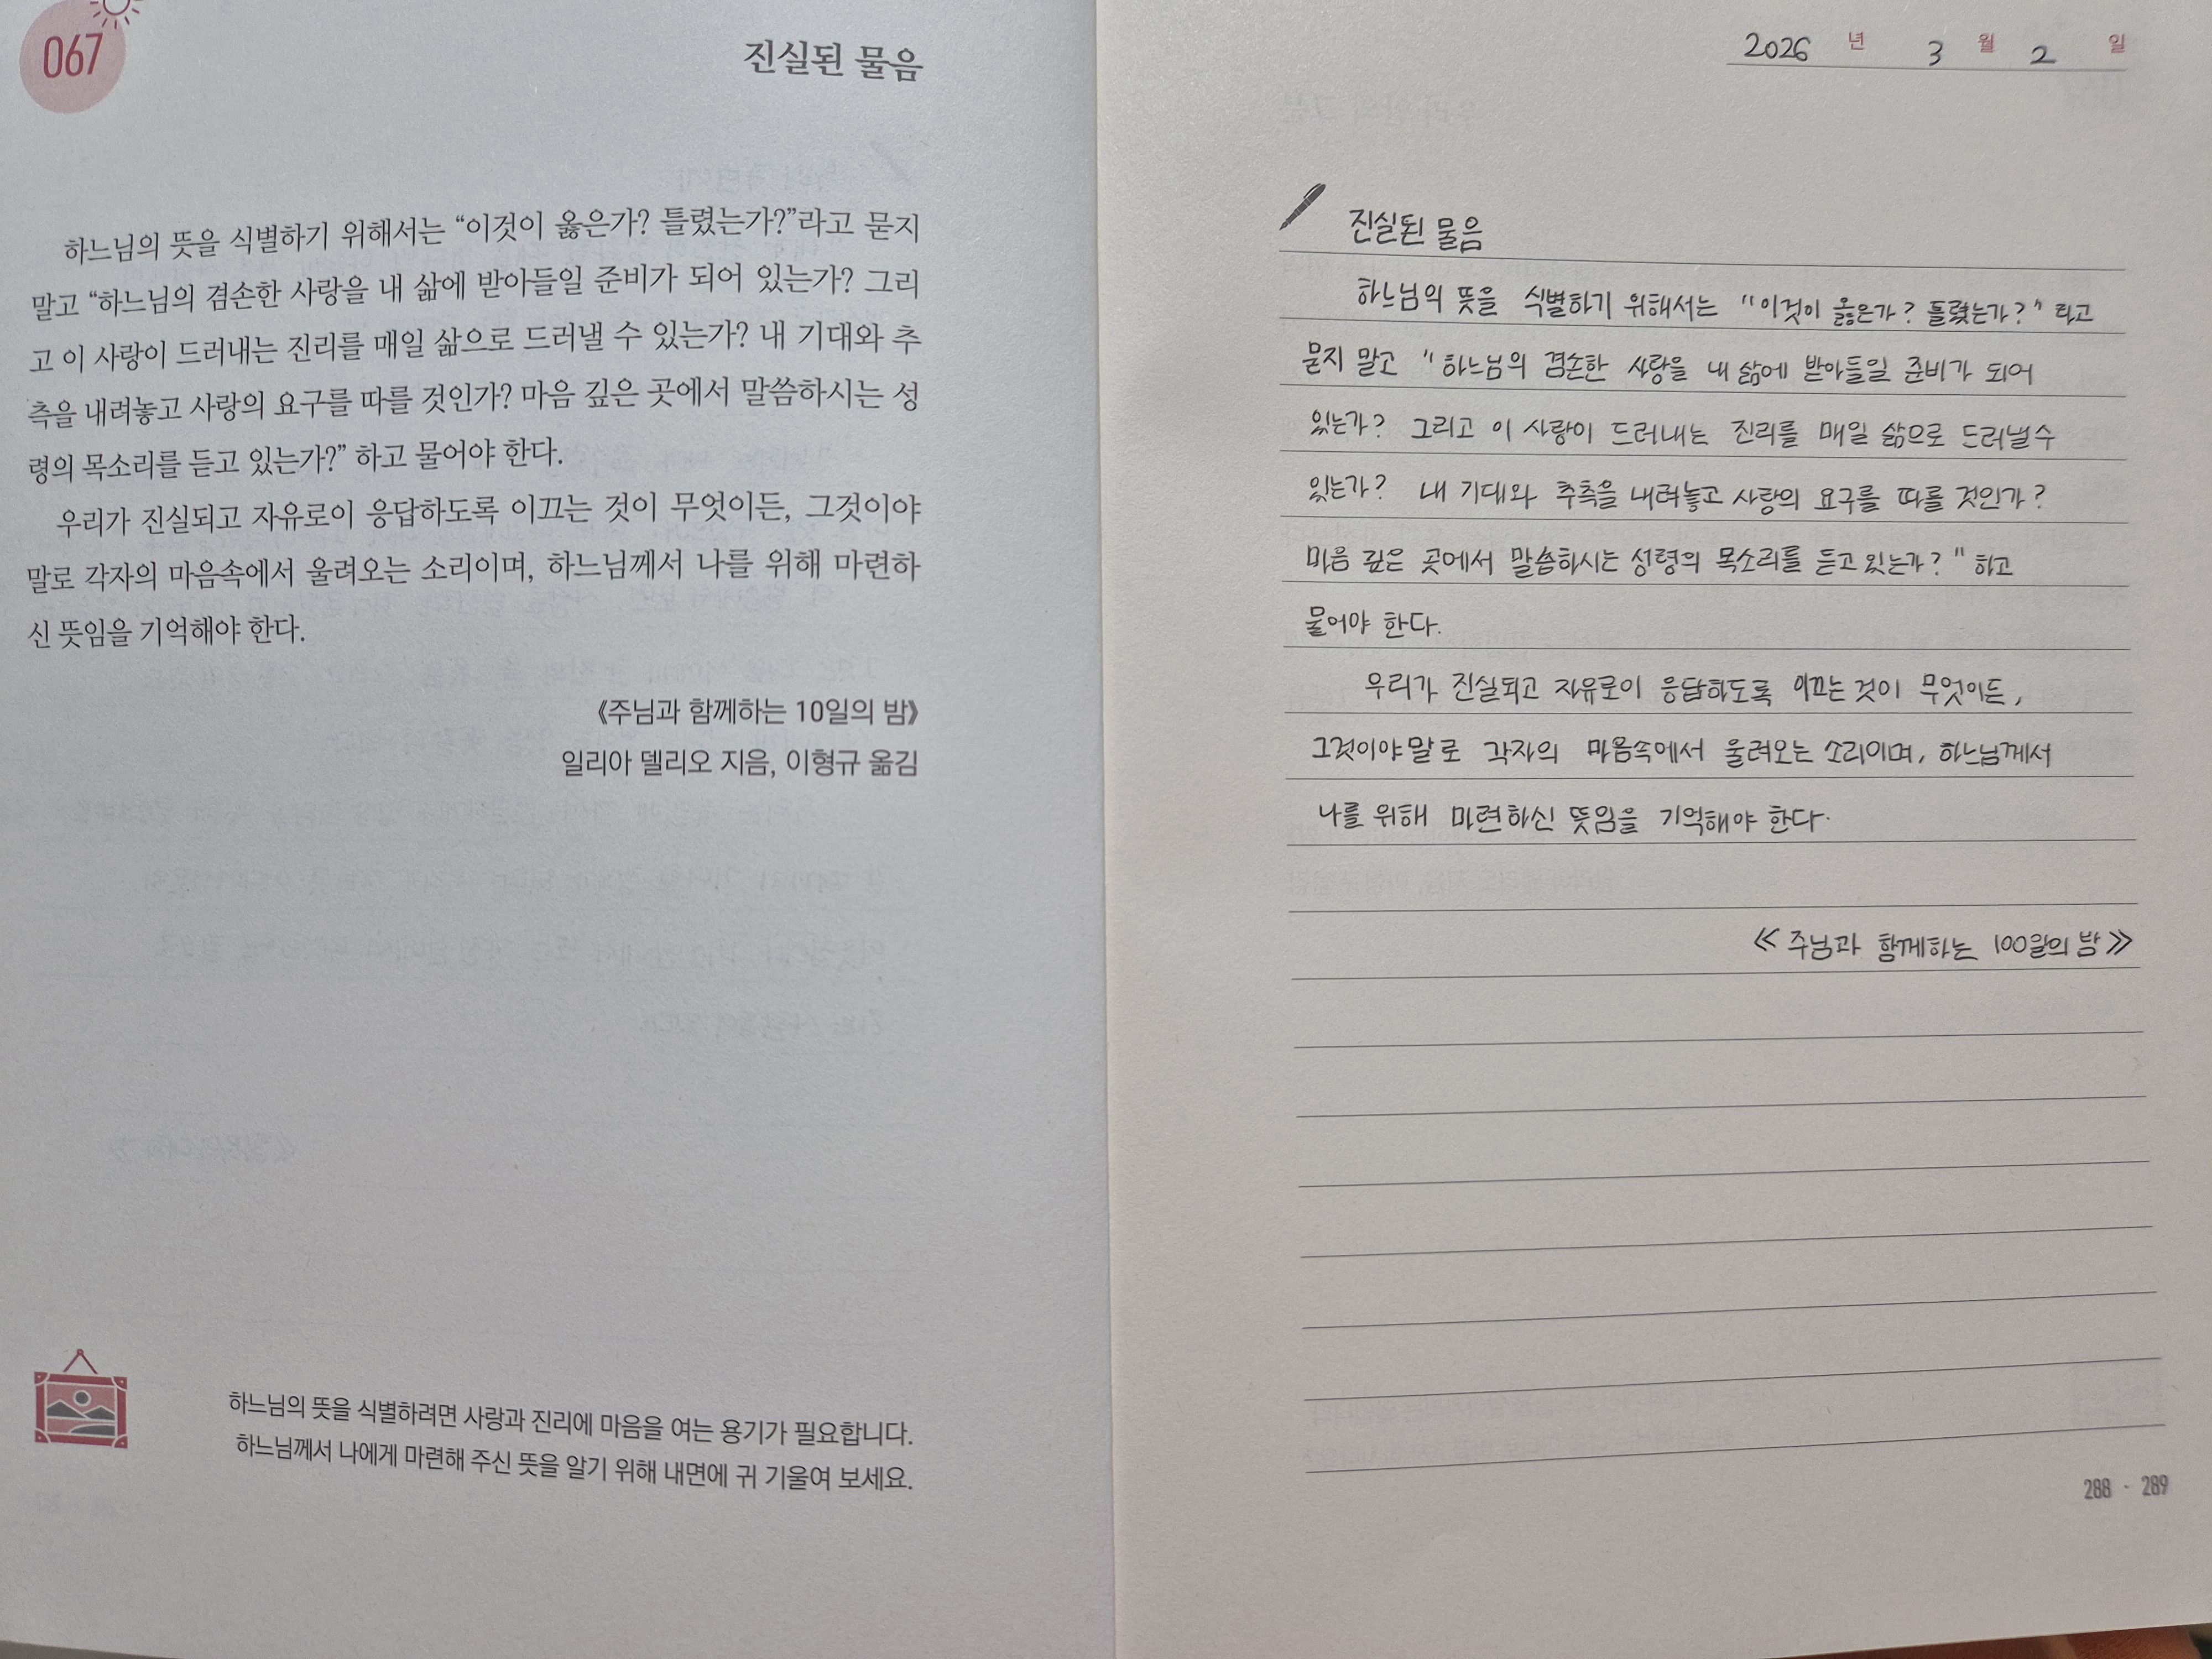 067
진실된 물음
하느님의 뜻을 식별하기 위해서는 “이것이 옳은가? 틀렸는가?”라고 묻지
말고 “하느님의 겸손한 사랑을 내 삶에 받아들일 준비가 되어 있는가? 그리
고 이 사랑이 드러내는 진리를 매일 삶으로 드러낼 수 있는가? 내 기대와 추
측을 내려놓고 사랑의 요구를 따를 것인가? 마음 깊은 곳에서 말씀하시는 성
령의 목소리를 듣고 있는가?” 하고 물어야 한다.
우리가 진실되고 자유로이 응답하도록 이끄는 것이 무엇이든, 그것이야
말로 각자의 마음속에서 울려오는 소리이며, 하느님께서 나를 위해 마련하
신 뜻임을 기억해야 한다.
《주님과 함께하는 10일의 밤》
일리아 델리오 지음, 이형규 옮김
하느님의 뜻을 식별하려면 사랑과 진리에 마음을 여는 용기가 필요합니다.
하느님께서 나에게 마련해 주신 뜻을 알기 위해 내면에 귀 기울여 보세요.
2026 년 3 월 2 일
진실된 물음
하느님의 뜻을 식별하기 위해서는 "이것이 옳은가? 틀렸는가?" 라고
묻지 말고 "하느님의 겸손한 사랑을 내 삶에 받아들일 준비가 되어
있는가? 그리고 이 사랑이 드러내는 진리를 매일 삶으로 드러낼수
있는가? 내 기대와 추측을 내려놓고 사랑의 요구를 따를 것인가?
마음 깊은 곳에서 말씀하시는 성령의 목소리를 듣고 있는가?" 하고
물어야 한다.
우리가 진실되고 자유로이 응답하도록 이끄는 것이 무엇이든,
그것이야말로 각자의 마음속에서 울려오는 소리이며, 하느님께서
나를 위해 마련하신 뜻임을 기억해야 한다.
≪주님과 함께하는 100일의 밤≫
288 · 289